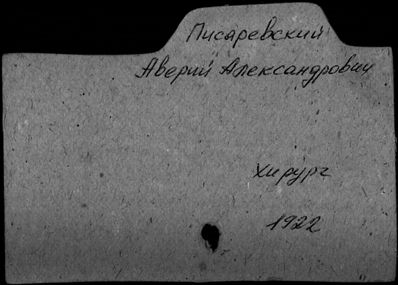 Писаревский
Аверий Александрович
Хирург
1922